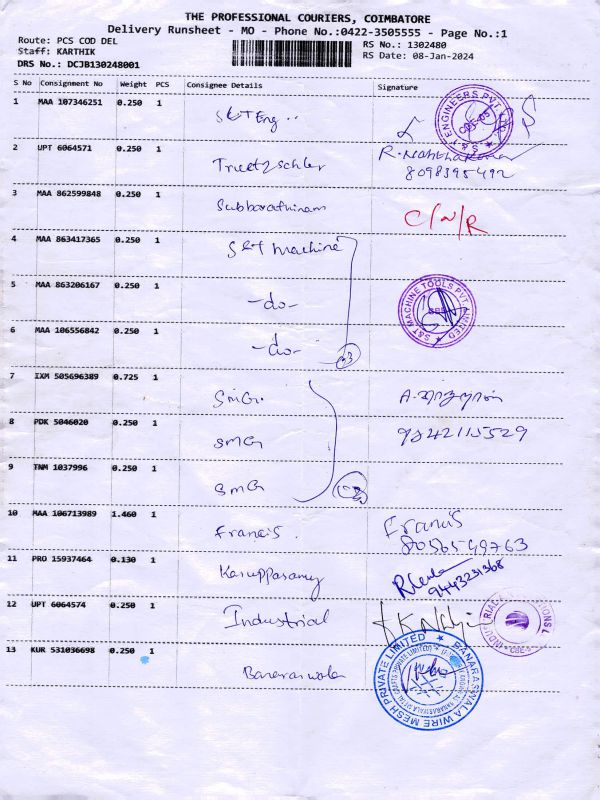 THE PROFESSIONAL COURIERS, COIMBATORE
Delivery Runsheet - MO - Phone No.:0422-3505555 - Page No.:1
Route: PCS COD DEL
Staff: KARTHIK
DRS No.: DCJB130248001
RS No.: 1302480
RS Date: 08-Jan-2024
S No Consignment No Weight PCS Consignee Details Signature
1 MAA 107346251 0.250 1 S&T Eng..
2 UPT 6064571 0.250 1 Truetzschler
8098395492
3 MAA 862599848 0.250 1 Subbarathinam C/N/R
4 MAA 863417365 0.250 1 S&T machine
5 MAA 863206167 0.250 1 -do-
S&T MACHINE TOOLS PVT LIMITED
6 MAA 106556842 0.250 1 -do-
7 IXM 505696389 0.725 1 SMG.
8 PDK 5046020 0.250 1 SMG 9842115529
9 TNM 1037996 0.250 1 SMG
10 MAA 106713989 1.460 1 Francis. Francis
8056549763
11 PRO 15937464 0.130 1 Karuppasamy
9443231368
12 UPT 6064574 0.250 1 Industrial
13 KUR 531036698 0.250 1 Banaraswala
BANARASWALA WIRE MESH PRIVATE LIMITED